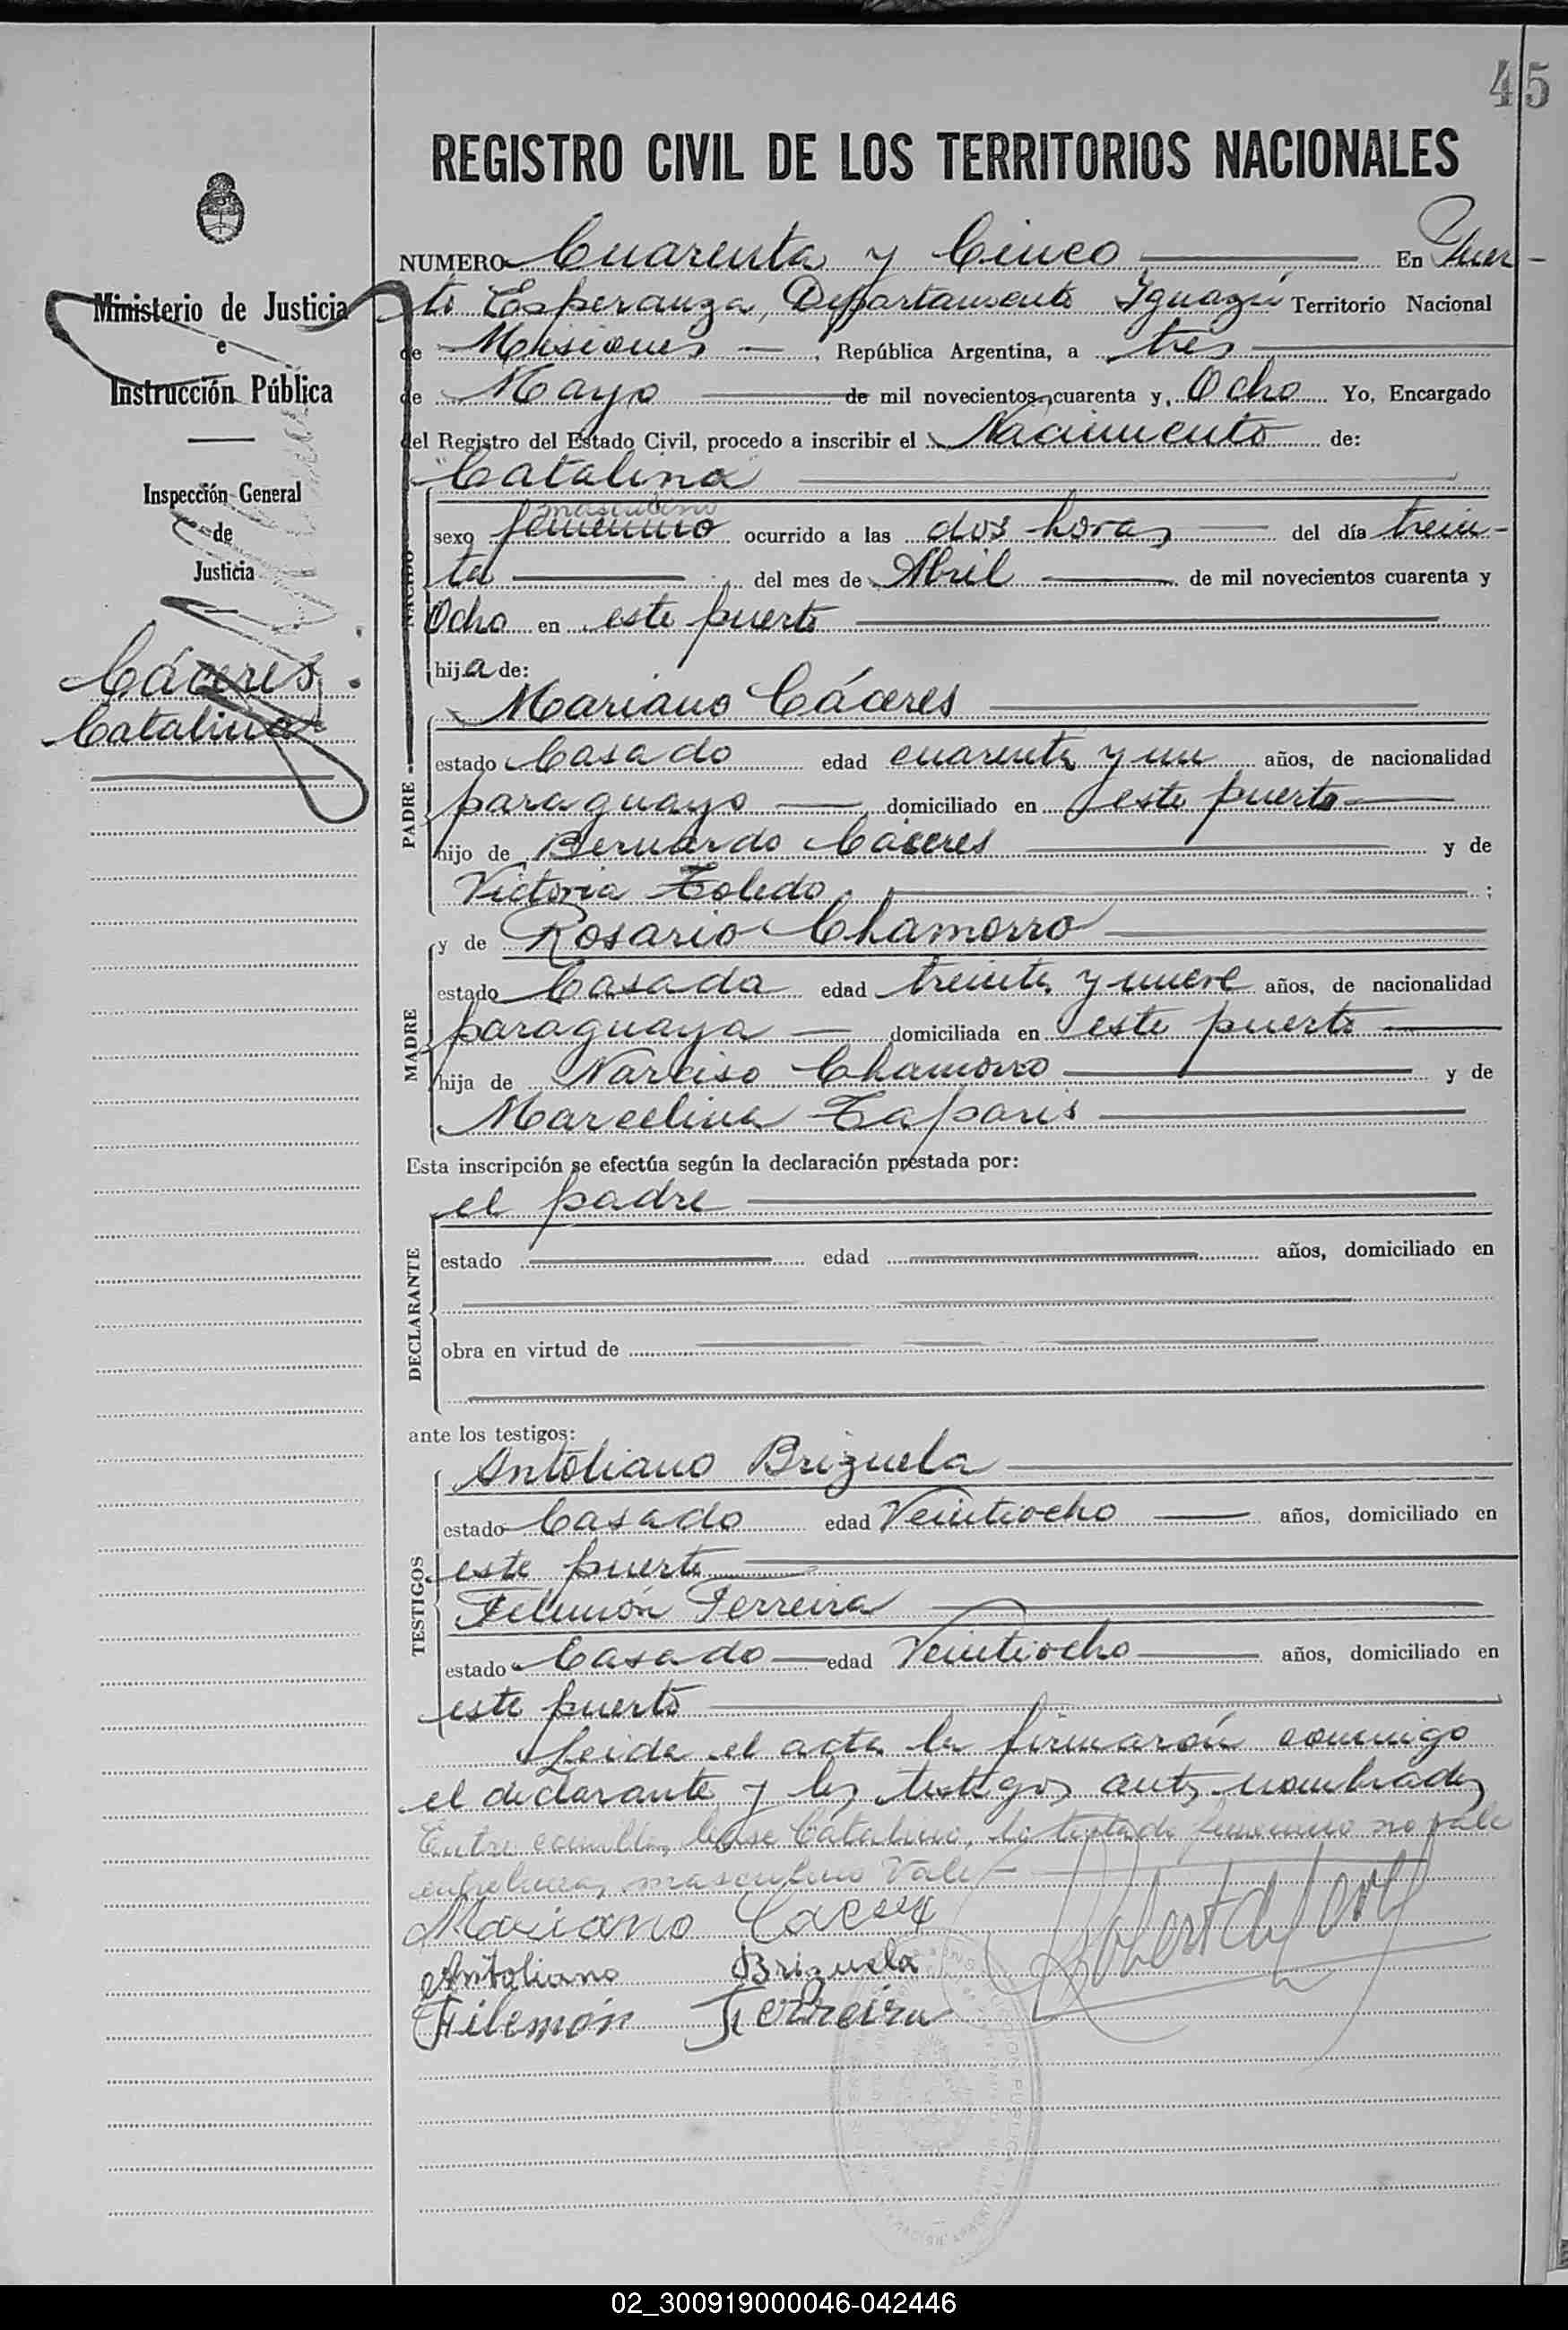 45
REGISTRO CIVIL DE LOS TERRITORIOS NACIONALES
NUMERO Cuarenta y Cinco En Puer-
to Esperanza, Departamento Iguazú Territorio Nacional
de Misiones, República Argentina, a tres
de Mayo de mil novecientos cuarenta y Ocho Yo, Encargado
del Registro del Estado Civil, procedo a inscribir el Nacimiento de:
"Catalina"
masculino
sexo femenino ocurrido a las dos horas del día trein-
ta del mes de Abril de mil novecientos cuarenta y
Ocho en este puerto
hija de:
NACIDO
Mariano Cáceres
estado Casado edad cuarenta y un años, de nacionalidad
paraguayo domiciliado en este puerto
hijo de Bernardo Cáceres y de
Victoria Toledo ;
PADRE
y de Rosario Chamorro
estado Casada edad treinta y nueve años, de nacionalidad
paraguaya domiciliada en este puerto
hija de Narciso Chamorro y de
Marcelina Taparis
MADRE
Esta inscripción se efectúa según la declaración prestada por:
el padre
estado edad años, domiciliado en
obra en virtud de
DECLARANTE
ante los testigos:
Antoliano Brizuela
estado Casado edad Veintiocho años, domiciliado en
este puerto
Filemón Ferreira
estado Casado edad Veintiocho años, domiciliado en
este puerto
TESTIGOS
Leida el acta la firmarón conmigo
el declarante y los testigos antes nombrados
Entre comillas, léase Catalino, lo testado femenino no vale
entrelíneas, masculino Vale
Mariano Caceres
Antoliano Brizuela
Filemón Ferreira
Ministerio de Justicia
e
Instrucción Pública
Inspección General
de
Justicia
Cáceres
Catalina
02_300919000046-042446